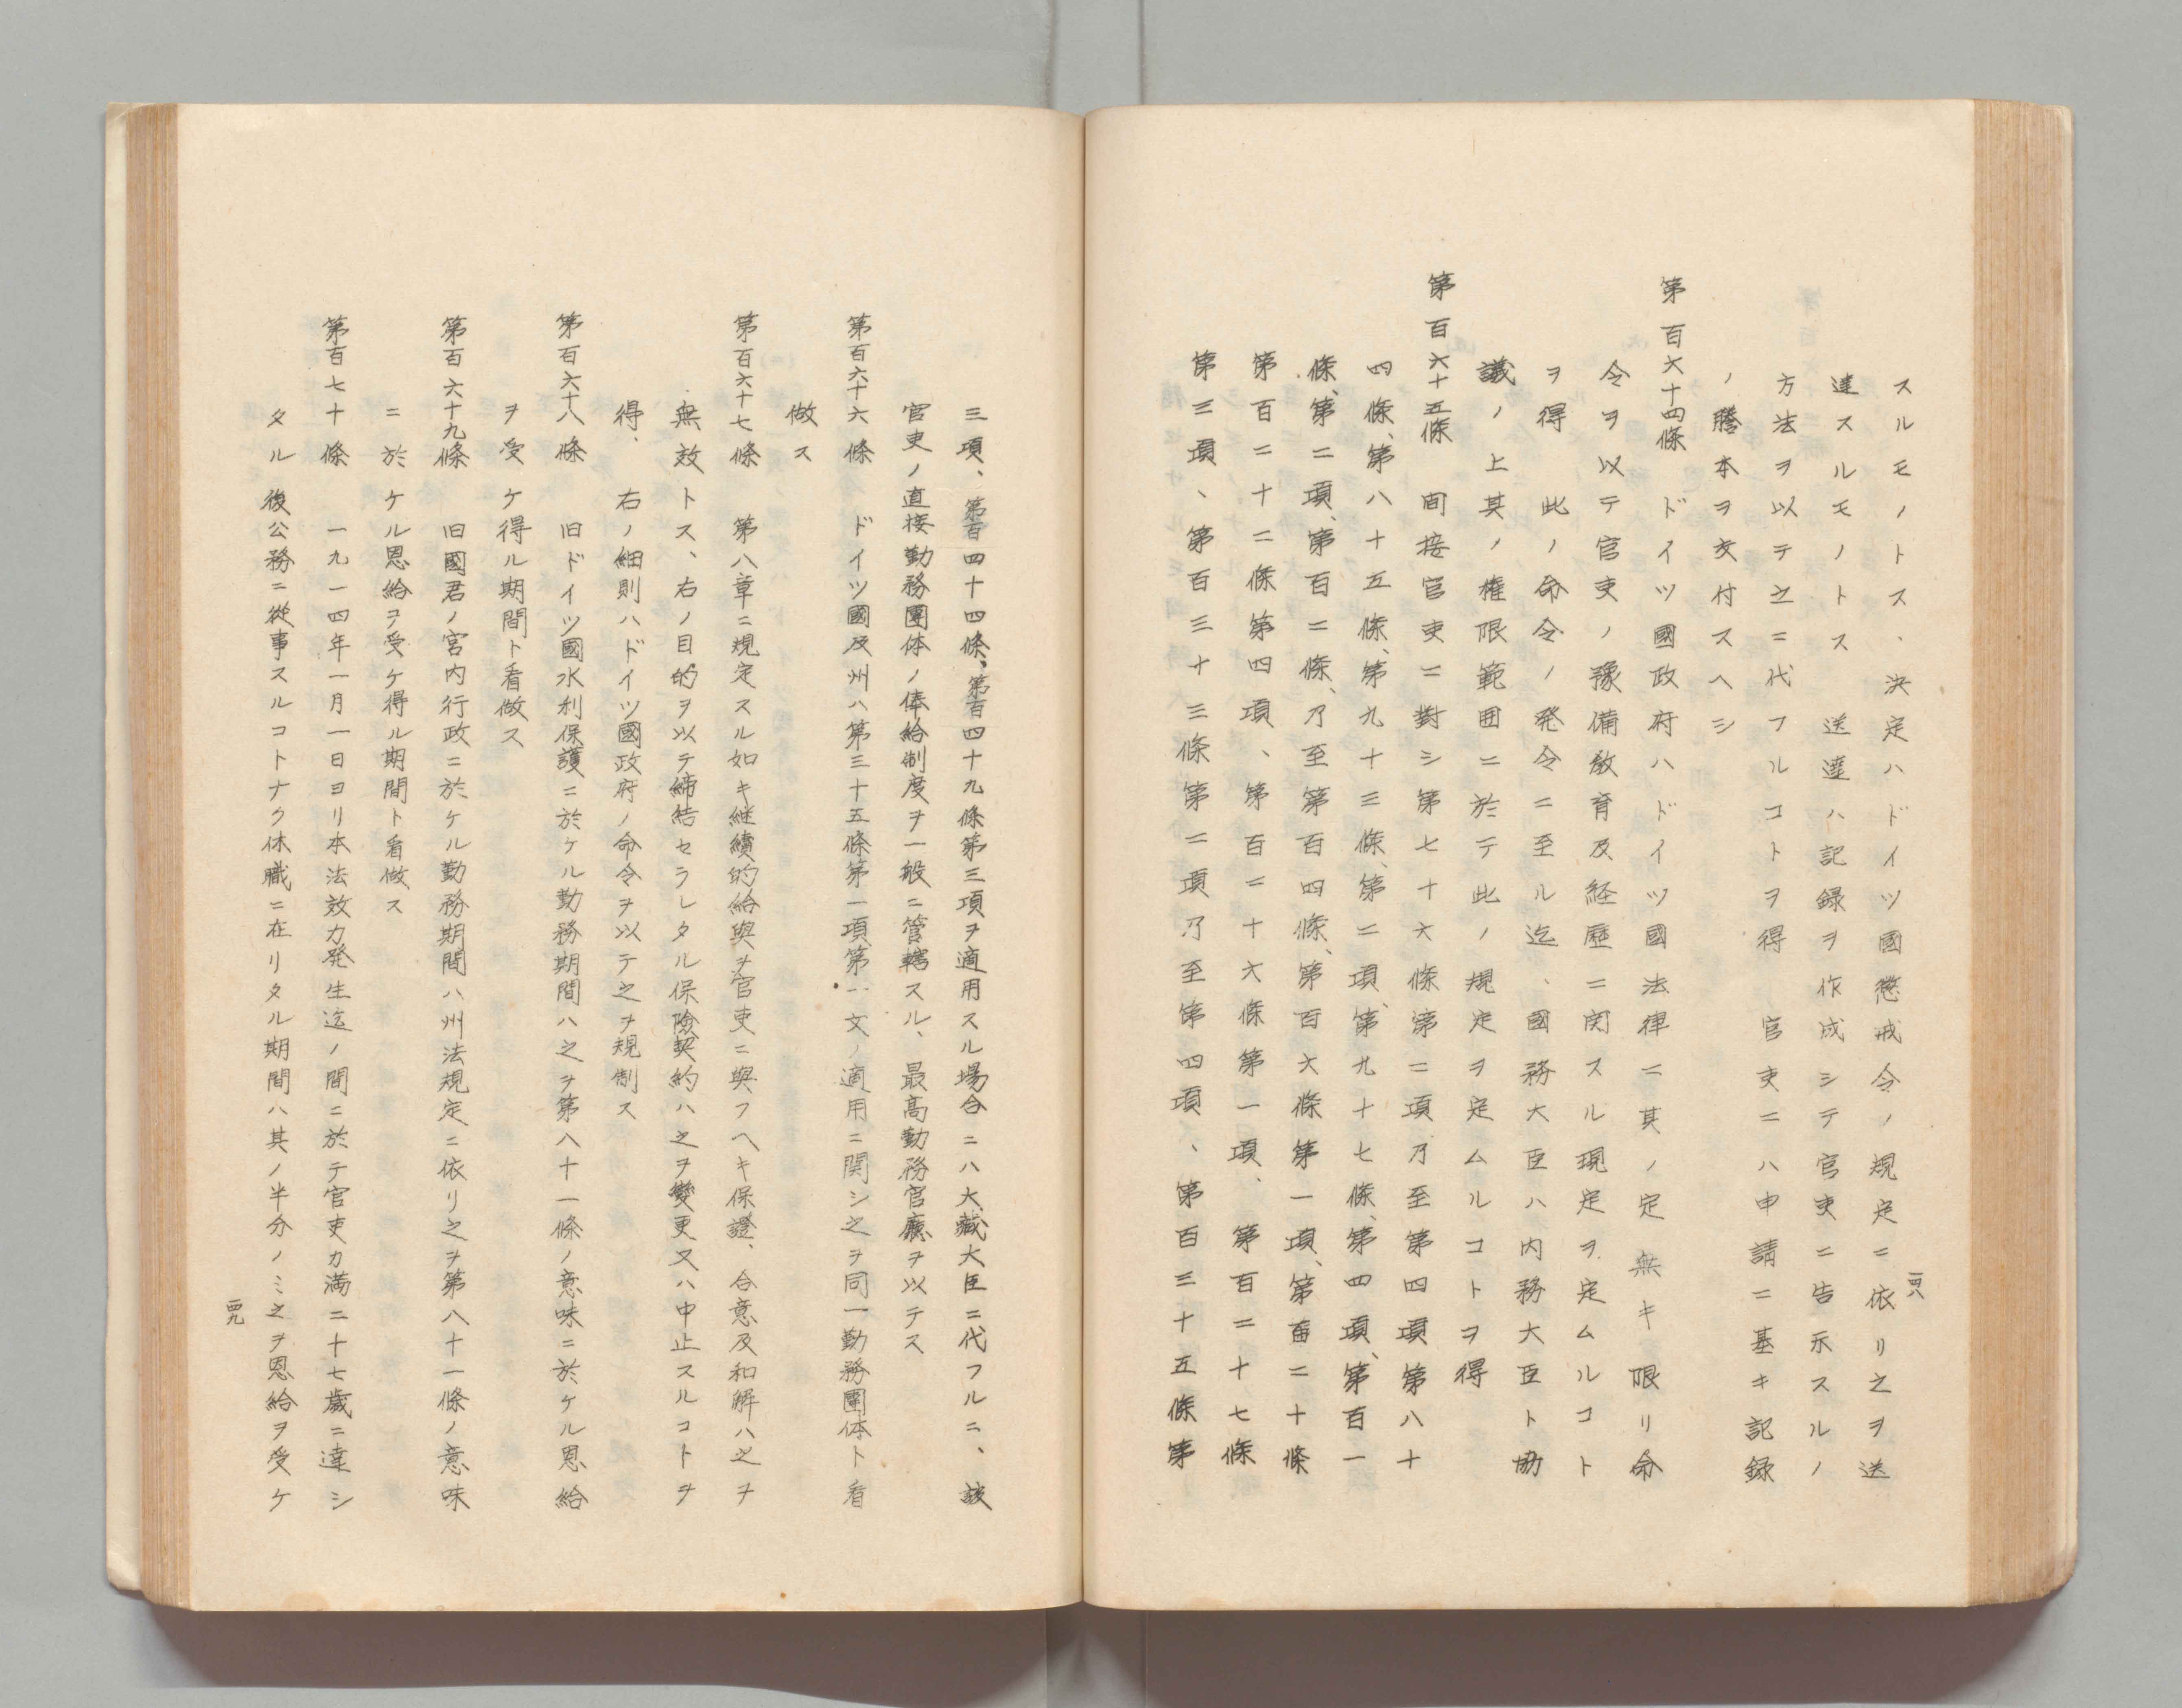 スルモノトス、決定ハドイツ國懲戒令ノ規定ニ依リ之ヲ送
達スルモノトス　送達ハ記録ヲ作成シテ官吏ニ告示スルノ
方法ヲ以テ之ニ代フルコトヲ得　官吏ニハ申請ニ基キ記録
ノ謄本ヲ交付スヘシ
第百六十四條　ドイツ國政府ハドイツ國法律ニ其ノ定無キ限リ命
令ヲ以テ官吏ノ豫備敎育及経歴ニ関スル現定ヲ定ムルコト
ヲ得　此ノ命令ノ発令ニ至ル迄、國務大臣ハ内務大臣ト協
議ノ上其ノ権限範囲ニ於テ此ノ規定ヲ定ムルコトヲ得
第百六十五條　間接官吏ニ對シ第七十六條第二項乃至第四項第八十
四條、第八十五條、第九十三條、第二項、第九十七條、第四項、第百一
條、第二項、第百二條、乃至第百四條、第百六條第一項、第百二十條
第百二十二條第四項、第百二十六條第一項、第百二十七條
第三項、第百三十三條第二項乃至第四項、第百三十五條第
一四八
三項、第百四十四條、第百四十九條第三項ヲ適用スル場合ニハ大藏大臣ニ代フルニ、該
官吏ノ直接勤務團体ノ俸給制度ヲ一般ニ管轄スル、最高勤務官廳ヲ以テス
第百六十六條　ドイツ國及州ハ第三十五條第一項第二文ノ適用ニ関シ之ヲ同一勤務團体ト看
做ス
第百六十七條　第八章ニ規定スル如キ継續的給與ヲ官吏ニ與フヘキ保證、合意及和解ハ之ヲ
無效トス、右ノ目的ヲ以テ締結セラレタル保險契約ハ之ヲ變更又ハ中止スルコトヲ
得、　右ノ細則ハドイツ國政府ノ命令ヲ以テ之ヲ規制ス
第百六十八條　旧ドイツ國水利保護ニ於ケル勤務期間ハ之ヲ第八十一條ノ意味ニ於ケル恩給
ヲ受ケ得ル期間ト看做ス
第百六十九條　旧國君ノ宮内行政ニ於ケル勤務期間ハ州法規定ニ依リ之ヲ第八十一條ノ意味
ニ於ケル恩給ヲ受ケ得ル期間ト看做ス
第百七十條　一九一四年一月一日ヨリ本法效力発生迄ノ間ニ於テ官吏カ満二十七歳ニ達シ
タル後公務ニ從事スルコトナク休職ニ在リタル期間ハ其ノ半分ノミ之ヲ恩給ヲ受ケ
一四九